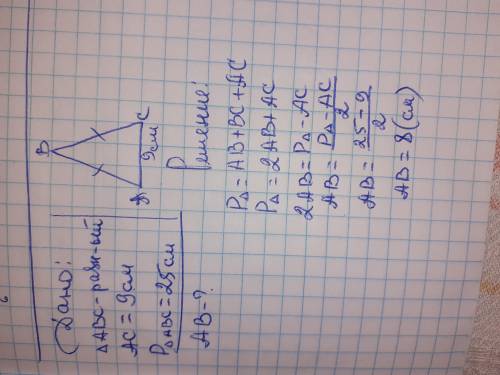 Дано:
ΔABC-равн-ый
AC = 9см
PΔABC = 25см
AB-?
B
A
C
9см
Решение:
PΔ = AB + BC + AC
PΔ = 2AB + AC
2AB = PΔ - AC
AB = (PΔ - AC)/2
AB = (25 - 9)/2
AB = 8 (см)